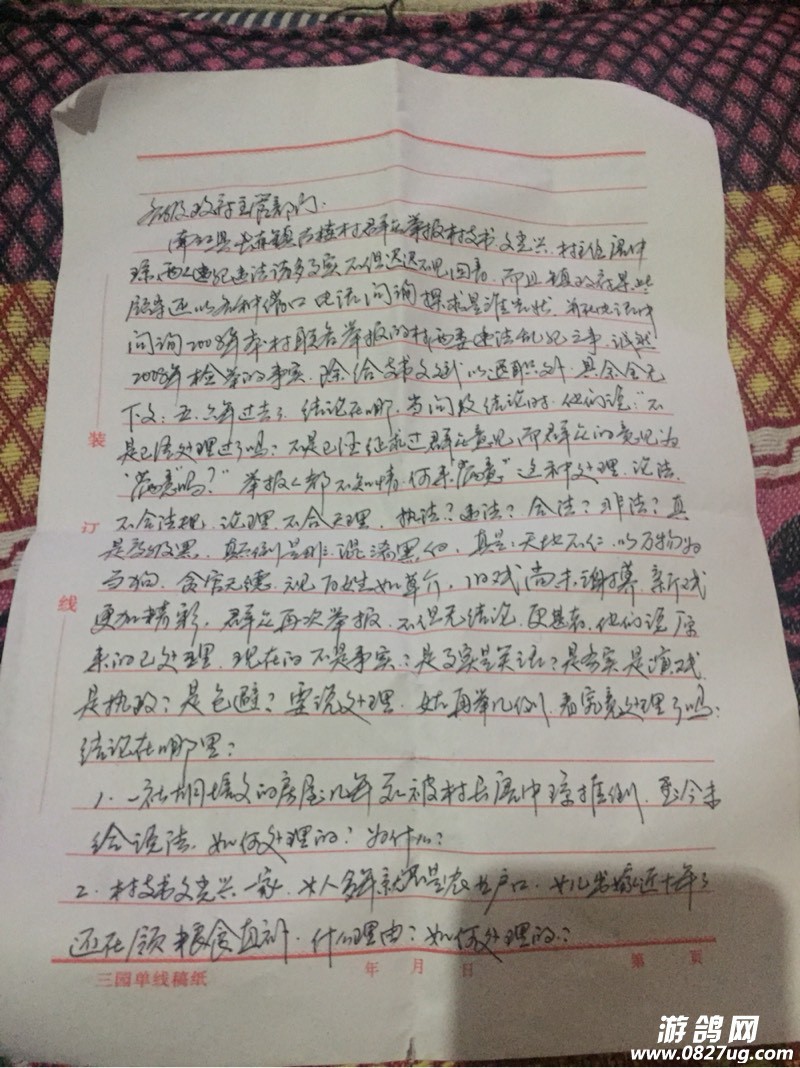 各级政府主管部门:
南江县长赤镇石楂村群众举报村支书文光兴、村主任唐中
琼两人违纪违法诸多事实不但迟迟不见回音,而且镇政府某些
领导还以各种借口电话问询探求是谁告状,并在电话中
问询2008年本村联名举报的村两委违法乱纪之事,诚然
2008年检举的事实,除给支书文 以退职外,其余全无
下文;五、六年过去了,结论在哪,当问及结论时,他们说:“不
是已经处理过了吗?不是已经征求过群众意见,而群众的意见为
“满意”吗?”举报人都不知情,何来“满意”这种处理,说法,
不合法规,论理,不合天理,执法?违法?合法?非法?真
是 黑,颠倒是非,混淆黑白,真是:天地不仁,以万物为
刍狗,贪官无德,视百姓如草介,旧戏尚未谢幕,新戏
更加精彩,群众再次举报,不但无结论,更甚者,他们说原
来的已处理,现在的不是事实?是事实是笑话?是务实是演戏,
是执政?是包庇?要说处理,姑再举几例,看究竟处理了吗?
结论在哪里?
1. 一社胡 文的房屋几年 被村长唐中琼推倒,至今未
给说法,如何处理的?为什么?
2. 村支书文光兴一家,女人多年就不是农业户口,女儿出嫁近十年了
还在领粮食直补,什么理由?如何处理的?
装
订
线
三园单线稿纸 年 月 日 第 页
游鸽网
www.0827ug.com